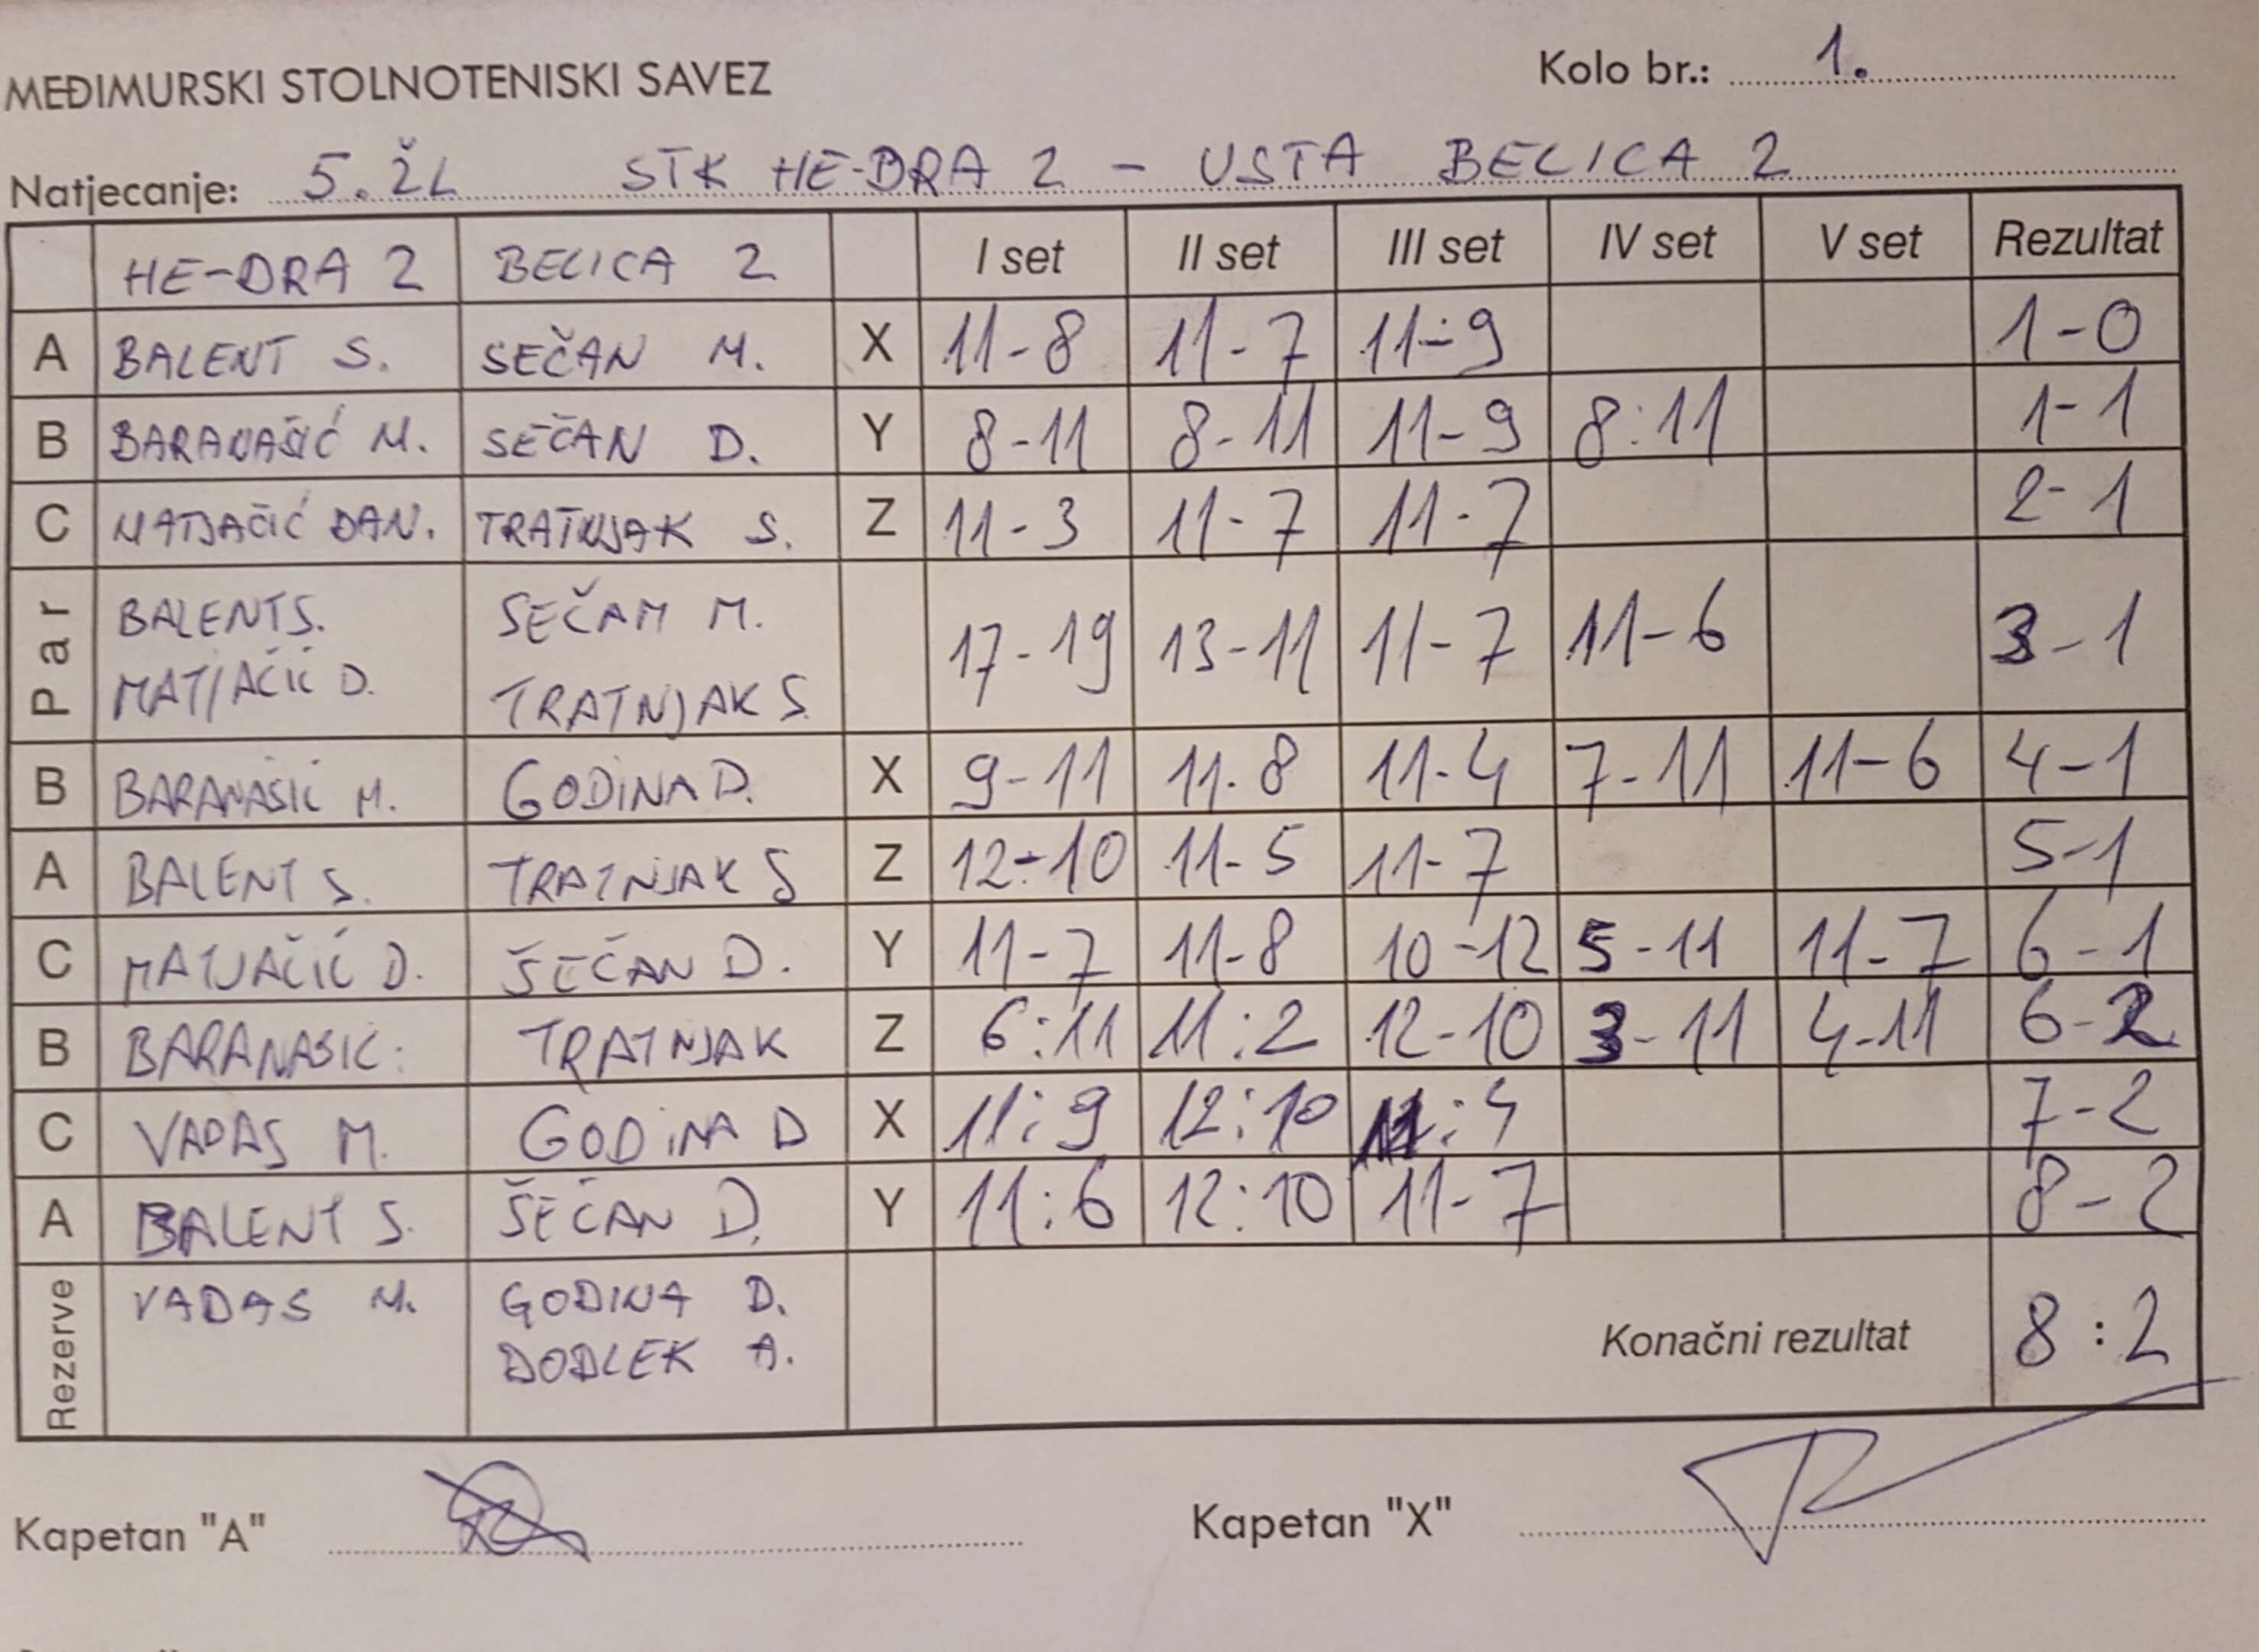 MEĐIMURSKI STOLNOTENISKI SAVEZ Kolo br.: 1.
Natjecanje: 5. ŽL STK HE-DRA 2 - USTA BELICA 2
HE-DRA 2 BELICA 2 I set II set III set IV set V set Rezultat
A BALENT S. SEČAN M. X 11-8 11-7 11-9 1-0
B BARANAŠIĆ M. SEČAN D. Y 8-11 8-11 11-9 8:11 1-1
C MATJAČIĆ DAN. TRATNJAK S. Z 11-3 11-7 11-7 2-1
Par BALENT S. SEČAM M. 17-19 13-11 11-7 11-6 3-1
MATJAČIĆ D. TRATNJAK S
B BARANASIĆ M. GODINA D. X 9-11 11-8 11-4 7-11 11-6 4-1
A BALENT S. TRATNJAK S Z 12-10 11-5 11-7 5-1
C MATJAČIĆ D. ŠEČAN D. Y 11-7 11-8 10-12 5-11 11-7 6-1
B BARANASIC. TRATNJAK Z 6:11 11:2 12-10 3-11 4-11 6-2
C VADAS M. GODINA D X 11:9 12:10 11:4 7-2
A BALENT S. ŠEČAN D. Y 11:6 12:10 11-7 8-2
Rezerve VADAS M. GODINA D. Konačni rezultat 8:2
DODLEK A.
Kapetan "A" Kapetan "X"